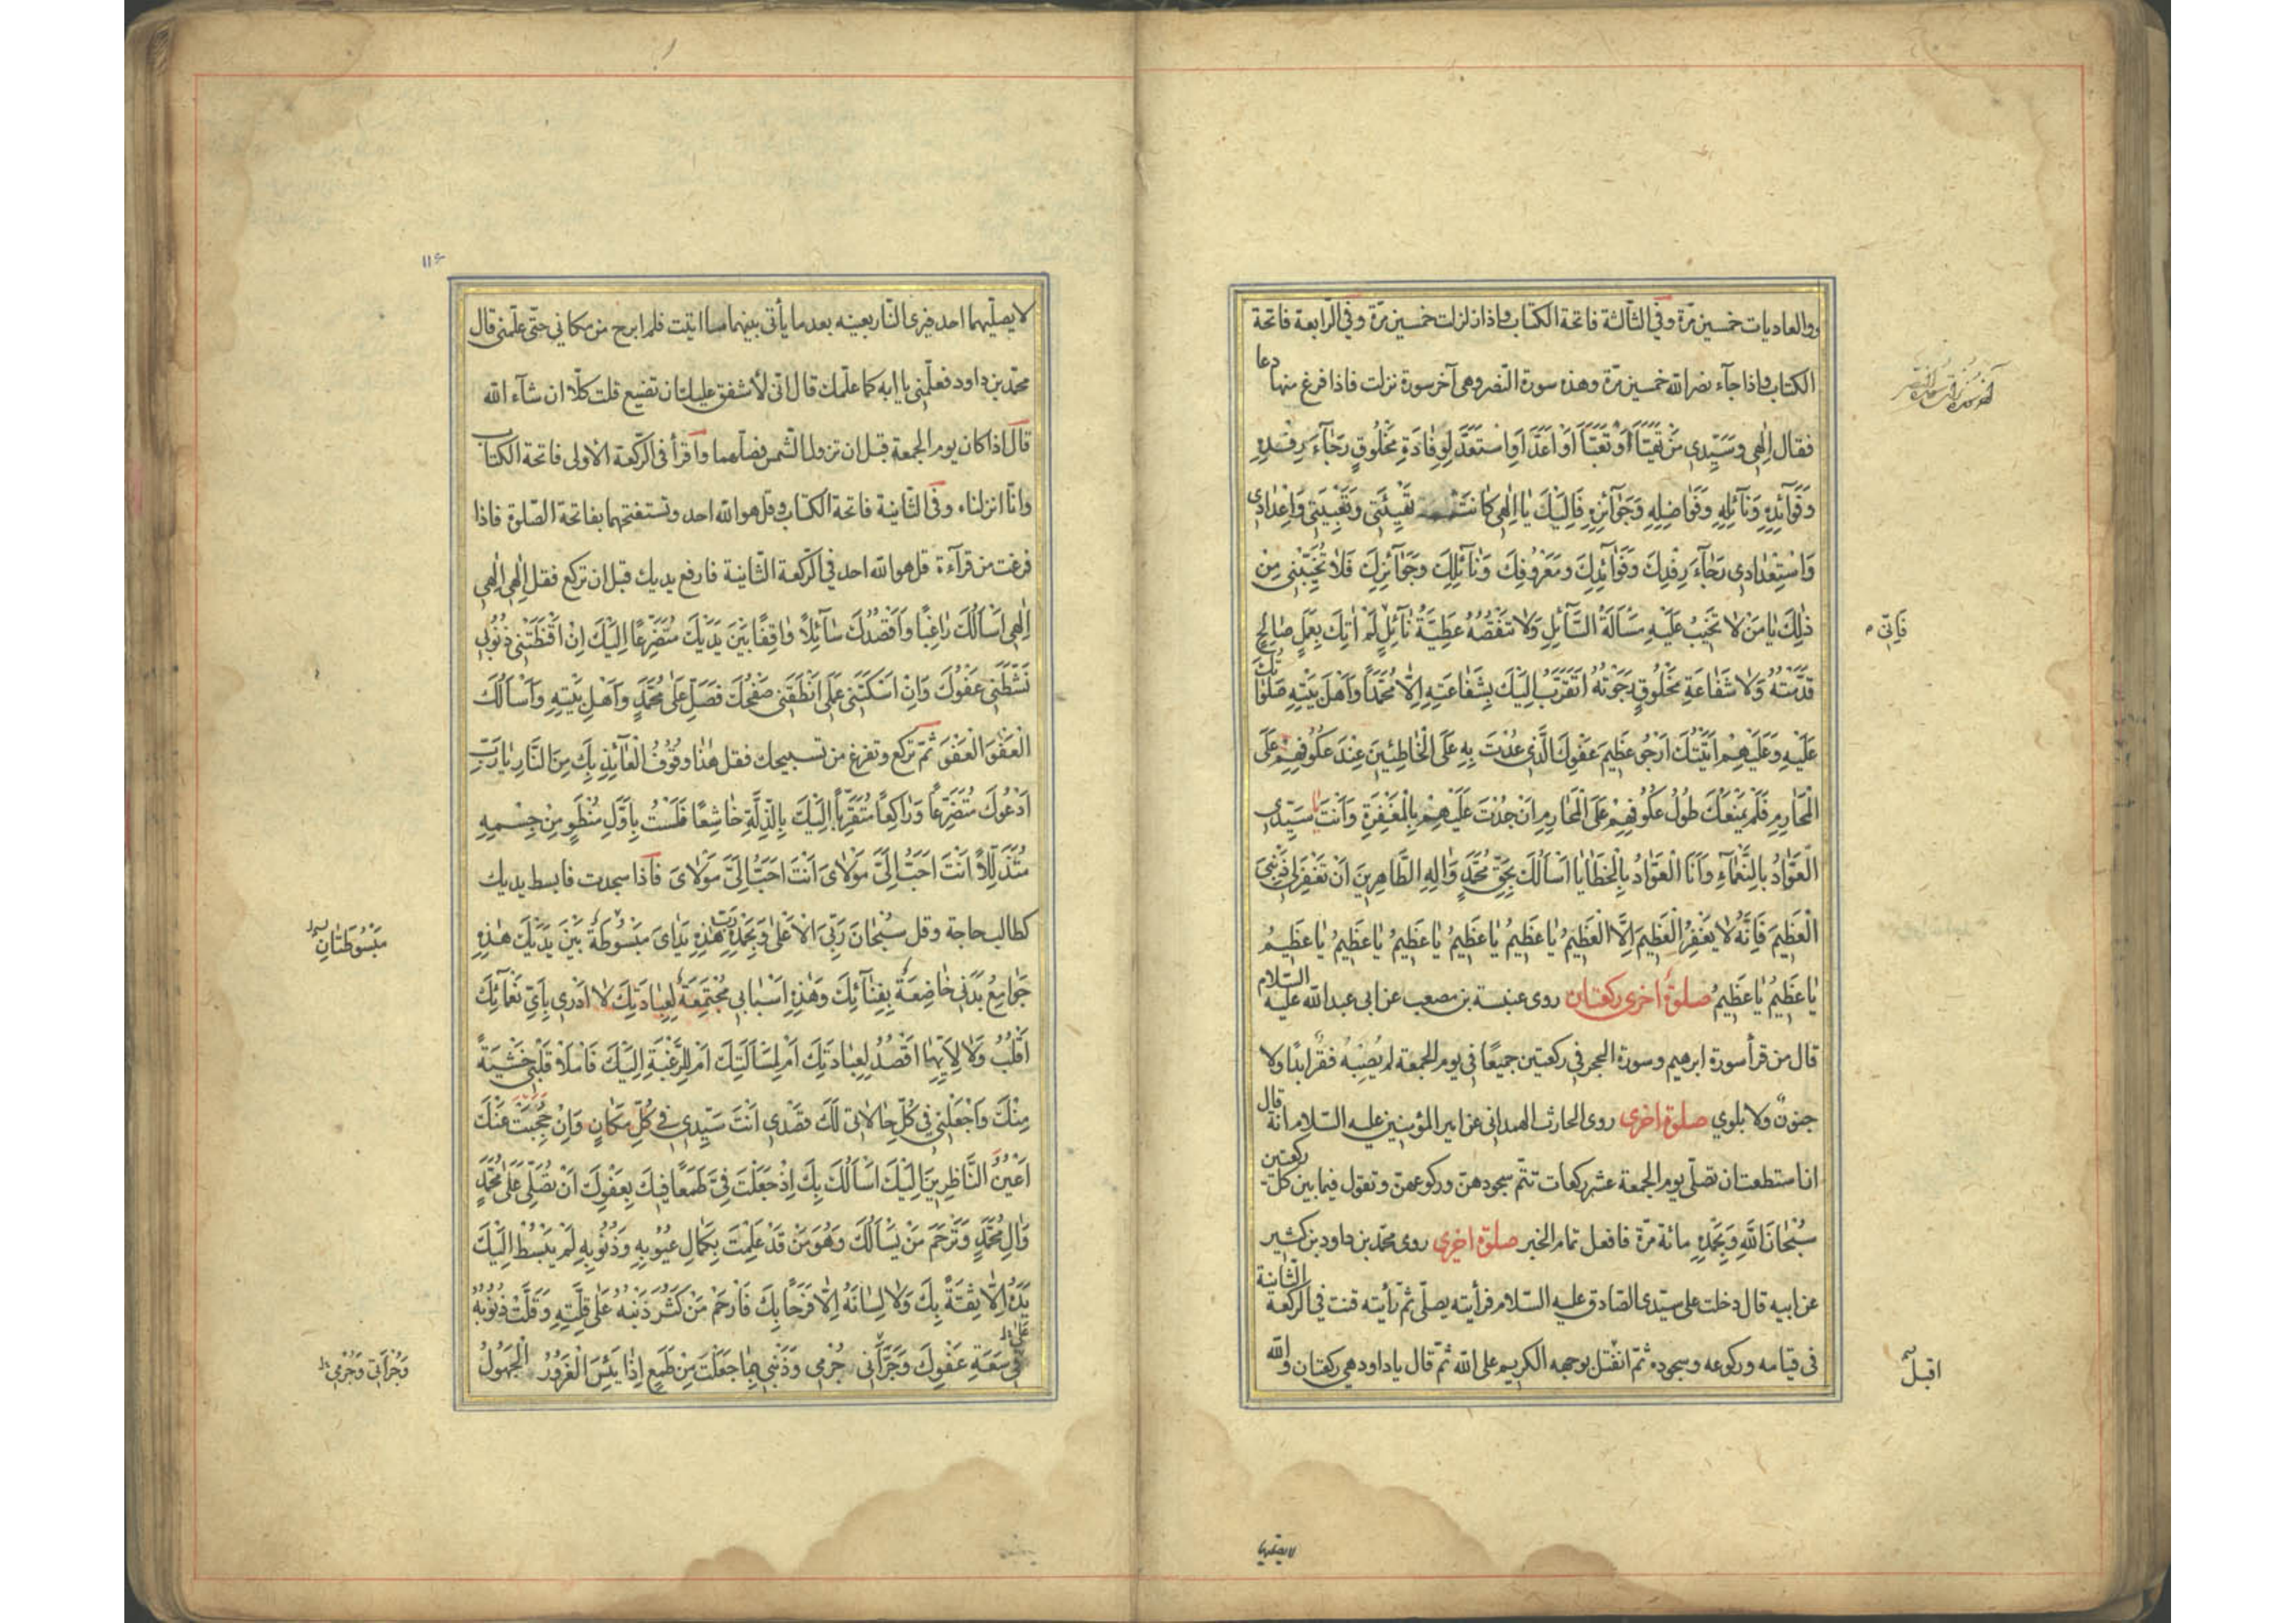 والعاديات خمسين مرّة وفي الثّالثة فاتحة الكتاب واذا زلزلت خمسين مرّة وفي الرّابعة فاتحة
الكتاب واذا جآء نصر الله خمسين مرّة وهذه سورة النّصر وهى آخر سورة نزلت فاذا فرغ منها دعا
فقال اِلٰهِى وَسَيِّدِى مَنْ تَهَيَّأَ اَوْ تَعَبَّأَ اَوْ اَعَدَّ اَوِ اسْتَعَدَّ لِوِفَادَةِ مَخْلُوقٍ رَجَآءَ رِفْدِهِ
وَفَوَآئِدِهِ وَنَآئِلِهِ وَفَوَاضِلِهِ وَجَوَآئِزِهِ فَاِلَيْكَ يَا اِلٰهِى كَانَتْ تَهْيِئَتِى وَتَعْبِيَتِى وَاِعْدَادِى
وَاسْتِعْدَادِى رَجَآءَ رِفْدِكَ وَفَوَآئِدِكَ وَمَعْرُوفِكَ وَنَآئِلِكَ وَجَوَآئِزِكَ فَلَا تُخَيِّبْنِى مِنْ
ذٰلِكَ يَا مَنْ لَا تَخِيبُ عَلَيْهِ مَسْأَلَةُ السَّآئِلِ وَلَا تَنْقُصُهُ عَطِيَّةُ نَآئِلٍ لَمْ اٰتِكَ بِعَمَلٍ صَالِحٍ
فَاِنّى
قَدَّمْتُهُ وَلَا شَفَاعَةِ مَخْلُوقٍ رَجَوْتُهُ اَتَقَرَّبُ اِلَيْكَ بِشَفَاعَتِهِ اِلَّا مُحَمَّدًا وَاَهْلَ بَيْتِهِ صَلَوَاتُكَ
عَلَيْهِ وَعَلَيْهِمْ اَتَيْتُكَ اَرْجُو عَظِيمَ عَفْوِكَ الَّذِى عُدْتَ بِهِ عَلَى الْخَاطِئِينَ عِنْدَ عُكُوفِهِمْ عَلَى
الْمَحَارِمِ فَلَمْ يَمْنَعْكَ طُولُ عُكُوفِهِمْ عَلَى الْمَحَارِمِ اَنْ جُدْتَ عَلَيْهِمْ بِالْمَغْفِرَةِ وَاَنْتَ يا سَيِّدِى
الْعَوَّادُ بِالنَّعْمَآءِ وَاَنَا الْعَوَّادُ بِالْخَطَايَا اَسْأَلُكَ بِحَقِّ مُحَمَّدٍ وَاٰلِهِ الطَّاهِرِينَ اَنْ تَغْفِرَ لِى ذَنْبِىَ
الْعَظِيمَ فَاِنَّهُ لَا يَغْفِرُ الْعَظِيمَ اِلَّا الْعَظِيمُ يَا عَظِيمُ يَا عَظِيمُ يَا عَظِيمُ يَا عَظِيمُ يَا عَظِيمُ
يَا عَظِيمُ يَا عَظِيمُ صلوة اخرى ركعتان روى عنبسة بن مصعب عن ابى عبد الله عليه السّلام
قال من قرأ سورة ابرهيم وسورة الحجر فى ركعتين جميعًا فى يوم الجمعة لم يُصِبْهُ فقرٌ ابدًا ولا
جنونٌ ولا بلوي صلوة اخرى روى الحارث الهمدانى عن امير المؤمنين عليه السّلام انّه قال
ان استطعت ان تصلّى يوم الجمعة عشر ركعات تتمّ سجودهنّ وركوعهنّ وتقول فيما بين كلّ ركعتين
سُبْحَانَ اللّٰهِ وَبِحَمْدِهِ مائة مرّة فافعل تمام الخبر صلوة اخرى روى محمّد بن داود بن كثير
عن ابيه قال دخلت على سيّدى الصّادق عليه السّلام فرأيته يصلّى ثمّ رأيته قنت فى الرّكعة الثّانية
فى قيامه وركوعه وسجوده ثمّ انفتل بوجهه الكريم على الله ثمّ قال يا داود هى ركعتان والله
اقبل
لا يصلّيهما
١١٤
لا يصلّيهما احد فيرى النّار بعينه بعد ما يأتى بينهما ما اتيت فلم ابرح من مكانى حتّى علّمنى قال
محمّد بن داود فعلّمنى يا ابه كما علّمك قال انّى لأشفق عليك ان تضيع قلت كلّا ان شآء الله
قال اذا كان يوم الجمعة قبل ان تزول الشّمس فصلّهما واقرأ فى الرّكعة الأولى فاتحة الكتاب
وانّا انزلناه وفى الثّانية فاتحة الكتاب وقل هو الله احد وتستفتحهما بفاتحة الصّلوة فاذا
فرغت من قرآءة قل هو الله احد فى الرّكعة الثّانية فارفع يديك قبل ان تركع فقل اِلٰهِى اِلٰهِى
اِلٰهِى اَسْأَلُكَ رَاغِبًا وَاَقْصُدُكَ سَآئِلًا وَاقِفًا بَيْنَ يَدَيْكَ مُتَضَرِّعًا اِلَيْكَ اِنْ اَقْنَطَتْنِى ذُنُوبِى
نَشَّطَنِى عَفْوُكَ وَاِنْ اَسْكَتَنِى عَمَلِى اَنْطَقَنِى صَفْحُكَ فَصَلِّ عَلَى مُحَمَّدٍ وَاَهْلِ بَيْتِهِ وَاَسْأَلُكَ
الْعَفْوَ الْعَفْوَ ثمّ تركع وتفرغ من تسبيحك فقل هٰذَا وُقُوفُ الْعَآئِذِ بِكَ مِنَ النَّارِ يَا رَبِّ
اَدْعُوكَ مُتَضَرِّعًا وَرَاكِعًا مُتَقَرِّبًا اِلَيْكَ بِالذِّلَّةِ خَاشِعًا فَلَسْتُ بِاَوَّلِ مُنْطَوٍ مِنْ جِسْمِهِ
مُتَذَلِّلًا اَنْتَ اَحَبُّ اِلَىَّ مَوْلَاىَ اَنْتَ اَحَبُّ اِلَىَّ مَوْلَاىَ فاذا سجدت فابسط يديك
كطالب حاجة وقل سُبْحَانَ رَبِّىَ الْاَعْلٰى وَبِحَمْدِهِ رَبِّ هٰذِهِ يَدَاىَ مَبْسُوطَةٌ بَيْنَ يَدَيْكَ هٰذِهِ
مَبْسُوطَتَانِ
جَوَامِعُ بَدَنِى خَاضِعَةٌ بِفِنَآئِكَ وَهٰذِهِ اَسْبَابِى مُجْتَمِعَةٌ لِعِبَادَتِكَ لَا اَدْرِى بِاَىِّ نَعْمَآئِكَ
اَقْلِبُ وَلَا لِاَيِّهَا اَقْصُدُ لِعِبَادَتِكَ اَمْ لِمَسْأَلَتِكَ اَمْ لِلرَّغْبَةِ اِلَيْكَ فَامْلَأْ قَلْبِى خَشْيَةً
مِنْكَ وَاجْعَلْنِى فِى كُلِّ حَالَاتِى لَكَ قَصْدِى اَنْتَ سَيِّدِى فِى كُلِّ مَكَانٍ وَاِنْ حُجِبَتْ عَنْكَ
اَعْيُنُ النَّاظِرِينَ اِلَيْكَ اَسْأَلُكَ بِكَ اِذْ جَعَلْتَ فِىَّ طَمَعًا فِيكَ بِعَفْوِكَ اَنْ تُصَلِّىَ عَلَى مُحَمَّدٍ
وَاٰلِ مُحَمَّدٍ وَتَرْحَمَ مَنْ يَسْأَلُكَ وَهُوَ مَنْ قَدْ عَلِمْتَ بِكَمَالِ عُيُوبِهِ وَذُنُوبِهِ لَمْ يَبْسُطْ اِلَيْكَ
يَدَهُ اِلَّا ثِقَةً بِكَ وَلَا لِسَانَهُ اِلَّا فَرَحًا بِكَ فَارْحَمْ مَنْ كَثُرَ ذَنْبُهُ عَلَى قِلَّتِهِ وَقَلَّتْ ذُنُوبُهُ
فِى سَعَةِ عَفْوِكَ وَجَرَّأَنِى جُرْمِى وَذَنْبِى بِمَا جَعَلْتَ مِنْ طَمَعٍ اِذَا يَئِسَ الْغَرُورُ الْجَهُولُ
وَجُرْأَتِى وَجُرْمِى